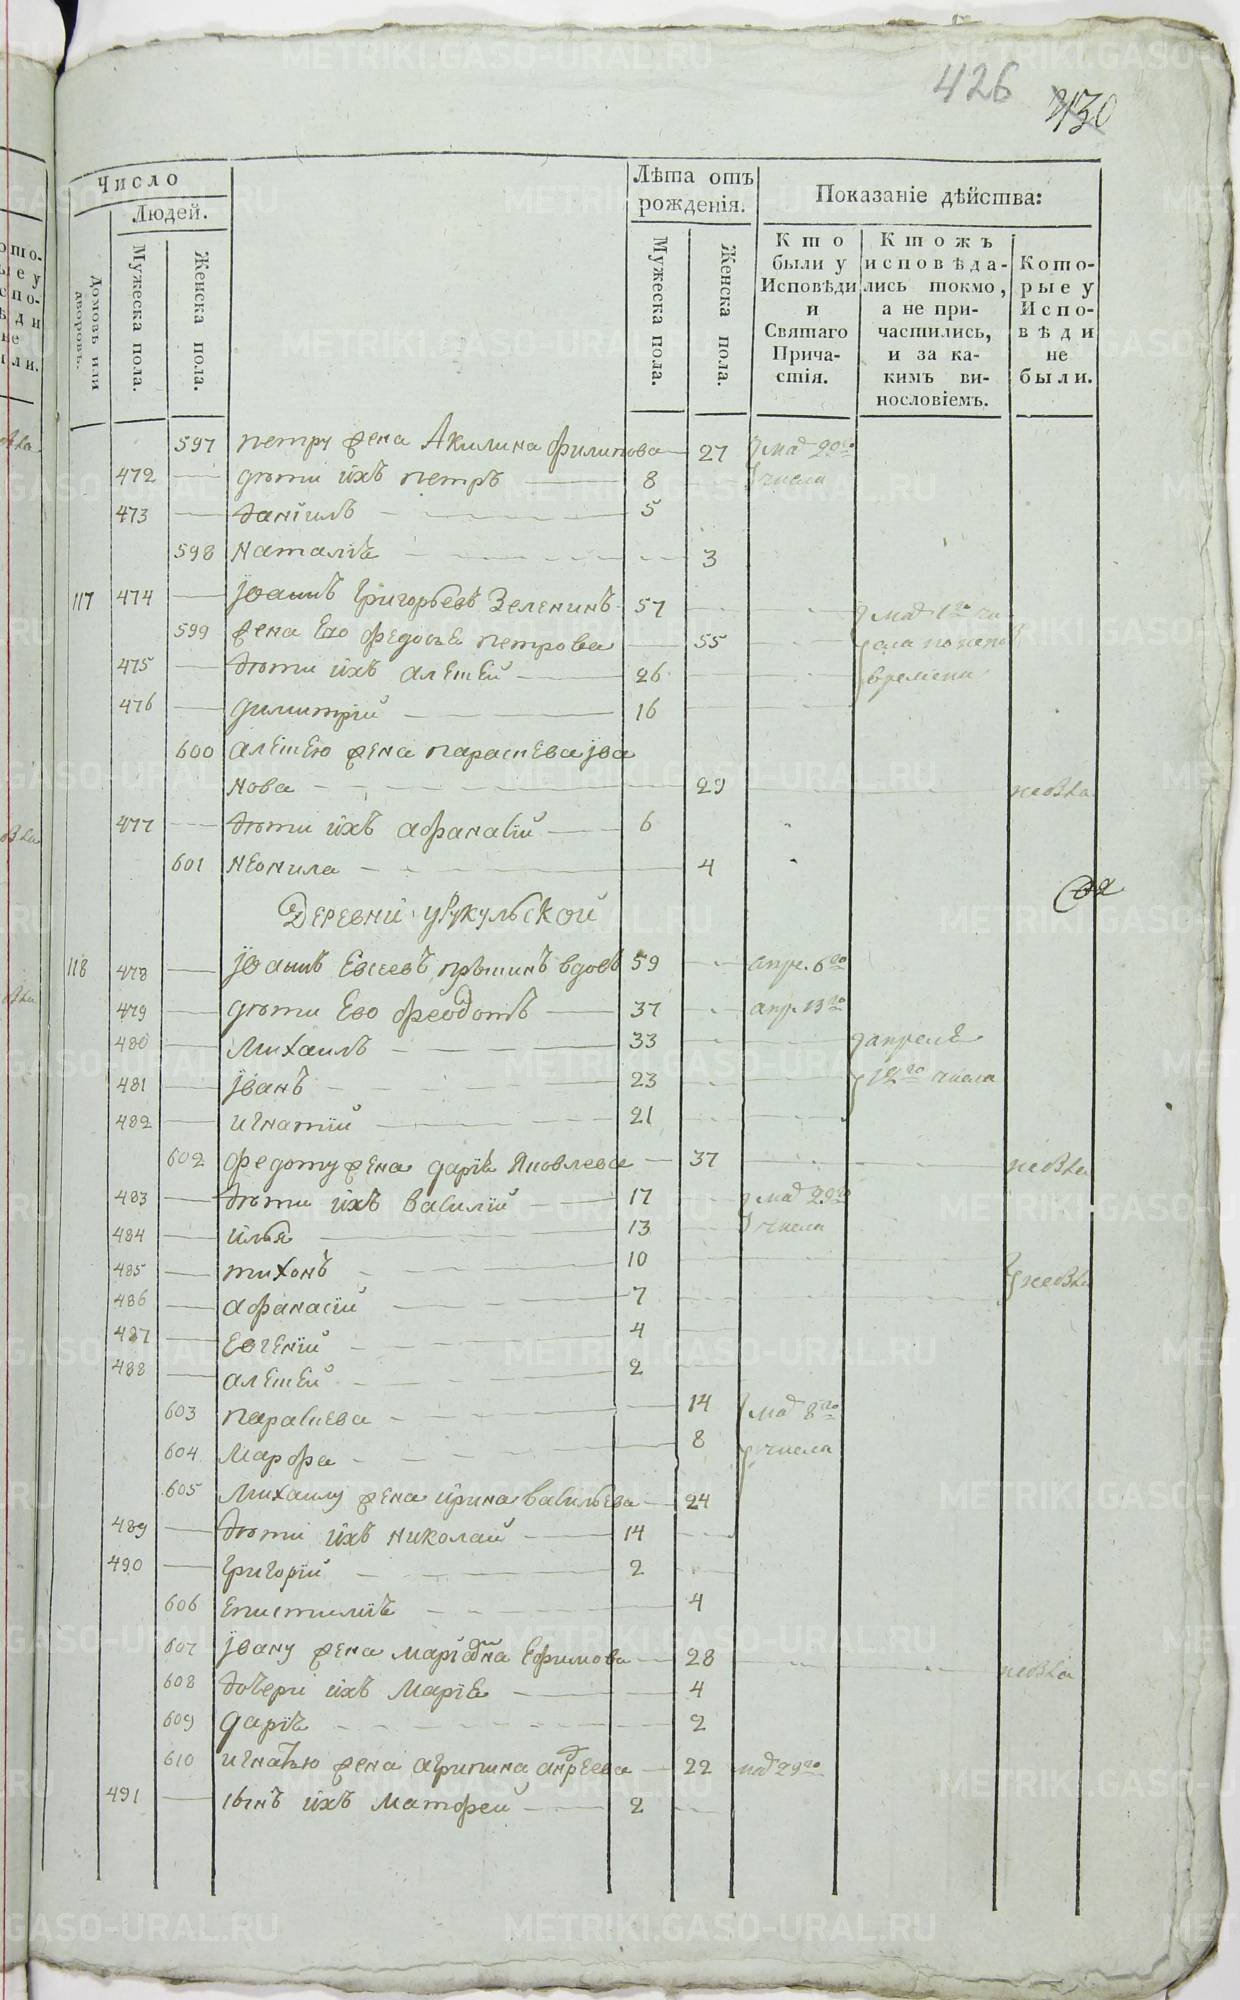 426
430
Число
Людей.
Домовъ или дворовъ.
Мужеска пола.
Женска пола.
Лѣта отъ рожденія.
Мужеска пола.
Женска пола.
Показаніе дѣйства:
Кто были у Исповѣди и Святаго Причастія.
Ктожъ исповѣдались токмо, а не причастились, и за какимъ винословіемъ.
Которые у Исповѣди не были.
597 петру жена Акилина филипова 27 маѧ 29го
472 дѣти ихъ петръ 8 числа
473 даніилъ 5
598 наталіѧ 3
117 474 Іоаннъ Григорьевъ Зеленинъ 57 маѧ 1го чи
599 жена Его федосьѧ петрова 55 сла
475 дѣти ихъ алеѯей 26 времени
476 димитрій 16
600 алеѯею жена параскева іва
нова 29
477 дѣти ихъ афанасій 6
601 неонила 4
Деревни урукульской
118 478 Іоаннъ Евсеевъ прѣшинъ вдовъ 59 апре. 6го
479 дѣти Его феодотъ 37 апр. 13го
480 михаилъ 33 апрелѧ
481 іванъ 23 12го числа
482 игнатій 21
602 федоту жена даріѧ Яковлева 37
483 дѣти ихъ василій 17 маѧ 29го
484 илья 13 числа
485 тихонъ 10
486 афанасій 7
487 евгеній 4
488 алеѯей 2
603 параскева 14 маѧ 8го
604 марфа 8 числа
605 михаилу жена ирина васильева 24
489 дѣти ихъ николай 14
490 григорій 2
606 епистиміѧ 4
607 івану жена маріамна Ефимова 28
608 дочери ихъ маріѧ 4
609 даріѧ 2
610 игнатью жена агрипина андреева 22 маѧ 29го
491 сынъ ихъ матфей 2
METRIKI.GASO-URAL.RU